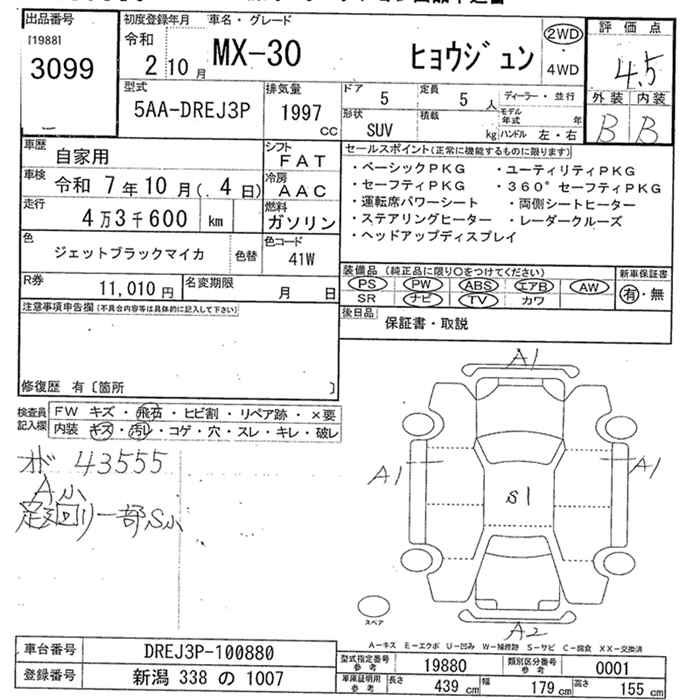 出品番号
[1988]
3099
初度登録年月
令和
2 10月
車名・グレード
MX-30 ヒョウジュン
2WD
・
4WD
評価点
4.5
外装 内装
B B
型式
5AA-DREJ3P
排気量
1997
cc
ドア
5
定員
5 人
形状
SUV
積載
kg
ディーラー・並行
モデル年式 年
ハンドル 左・右
車歴
自家用
シフト
FAT
車検
令和 7年10月( 4日)
冷房
AAC
走行
4万3千600 km
燃料
ガソリン
色
ジェットブラックマイカ
色替
色コード
41W
R券
11,010円
名変期限
月 日
セールスポイント(正常に機能するものに限ります)
・ベーシックPKG ・ユーティリティPKG
・セーフティPKG ・360°セーフティPKG
・運転席パワーシート ・両側シートヒーター
・ステアリングヒーター ・レーダークルーズ
・ヘッドアップディスプレイ
装備品(純正品に限り○をつけてください)
PS PW ABS エアB AW
SR ナビ TV カワ
新車保証書
有・無
後日品
保証書・取説
注意事項申告欄(不具合内容等は具体的に記入して下さい)
修復歴 有〔箇所 〕
検査員
記入欄
FW キズ・飛石・ヒビ割・リペア跡・×要
内装 キズ・汚レ・コゲ・穴・スレ・キレ・破レ
オド 43555
A小
一部S小
A1
A1
A1
S1
A2
スペア
A-キズ E-エクボ U-凹み W-補修跡 S-サビ C-腐食 XX-交換済
車台番号
DREJ3P-100880
登録番号
新潟 338 の 1007
型式指定番号
参考
19880
類別区分番号
参考
0001
車庫証明用
参考
長さ
439 cm
幅
179 cm
高さ
155 cm